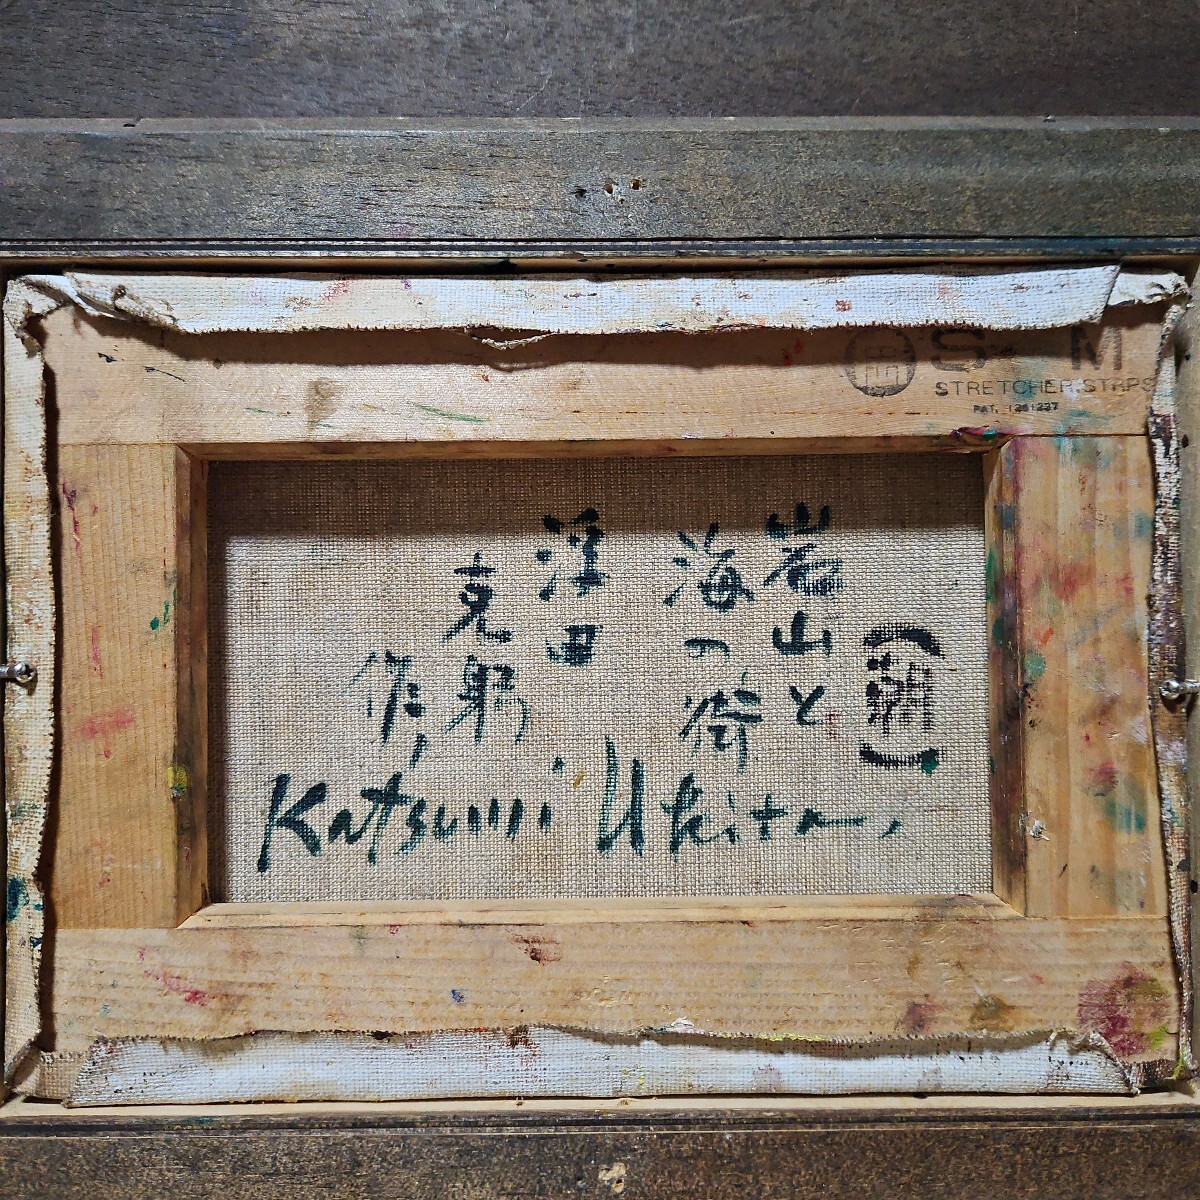 S M
STRETCHER STRPS
PAT. 1261237
(朝)
岩山と
海の街
浮田
克躬
作,
Katsumi Ukita,